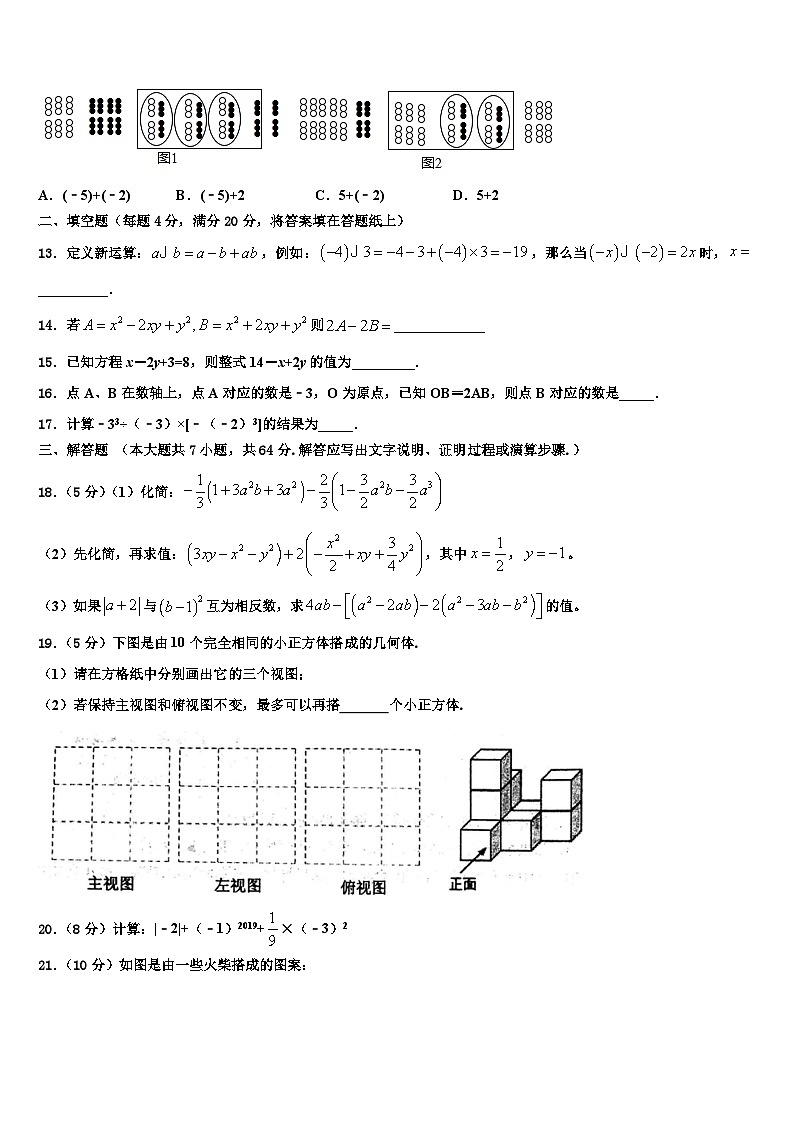 图1
图2
A．(﹣5)+(﹣2) B．(﹣5)+2 C．5+(﹣2) D．5+2
二、填空题（每题 4 分，满分 20 分，将答案填在答题纸上）
13．定义新运算：a⌡ b = a − b + ab，例如：(−4)⌡ 3 = −4−3+(−4)×3 = −19，那么当(−x)⌡ (−2) = 2x 时，x =
__________．
14．若 A = x² − 2xy + y², B = x² + 2xy + y² 则 2A − 2B = _____________
15．已知方程 x－2y+3=8，则整式 14－x+2y 的值为_________.
16．点 A、B 在数轴上，点 A 对应的数是﹣3，O 为原点，已知 OB＝2AB，则点 B 对应的数是_____．
17．计算﹣3³÷（﹣3）×[﹣（﹣2）³]的结果为_____．
三、解答题 （本大题共 7 小题，共 64 分.解答应写出文字说明、证明过程或演算步骤.）
18．（5 分）（1）化简：−1/3(1+3a²b+3a²)−2/3(1−3/2a²b−3/2a³)
（2）先化简，再求值：(3xy−x²−y²)+2(−x²/2+xy+3/4y²)，其中 x=1/2，y=−1。
（3）如果|a+2|与(b−1)²互为相反数，求4ab−[(a²−2ab)−2(a²−3ab−b²)]的值。
19．（5 分）下图是由 10 个完全相同的小正方体搭成的几何体.
（1）请在方格纸中分别画出它的三个视图；
（2）若保持主视图和俯视图不变，最多可以再搭_______个小正方体.
主视图 左视图 俯视图 正面
20．（8 分）计算：|﹣2|+（﹣1）²⁰¹⁹+1/9×（﹣3）²
21．（10 分）如图是由一些火柴搭成的图案：